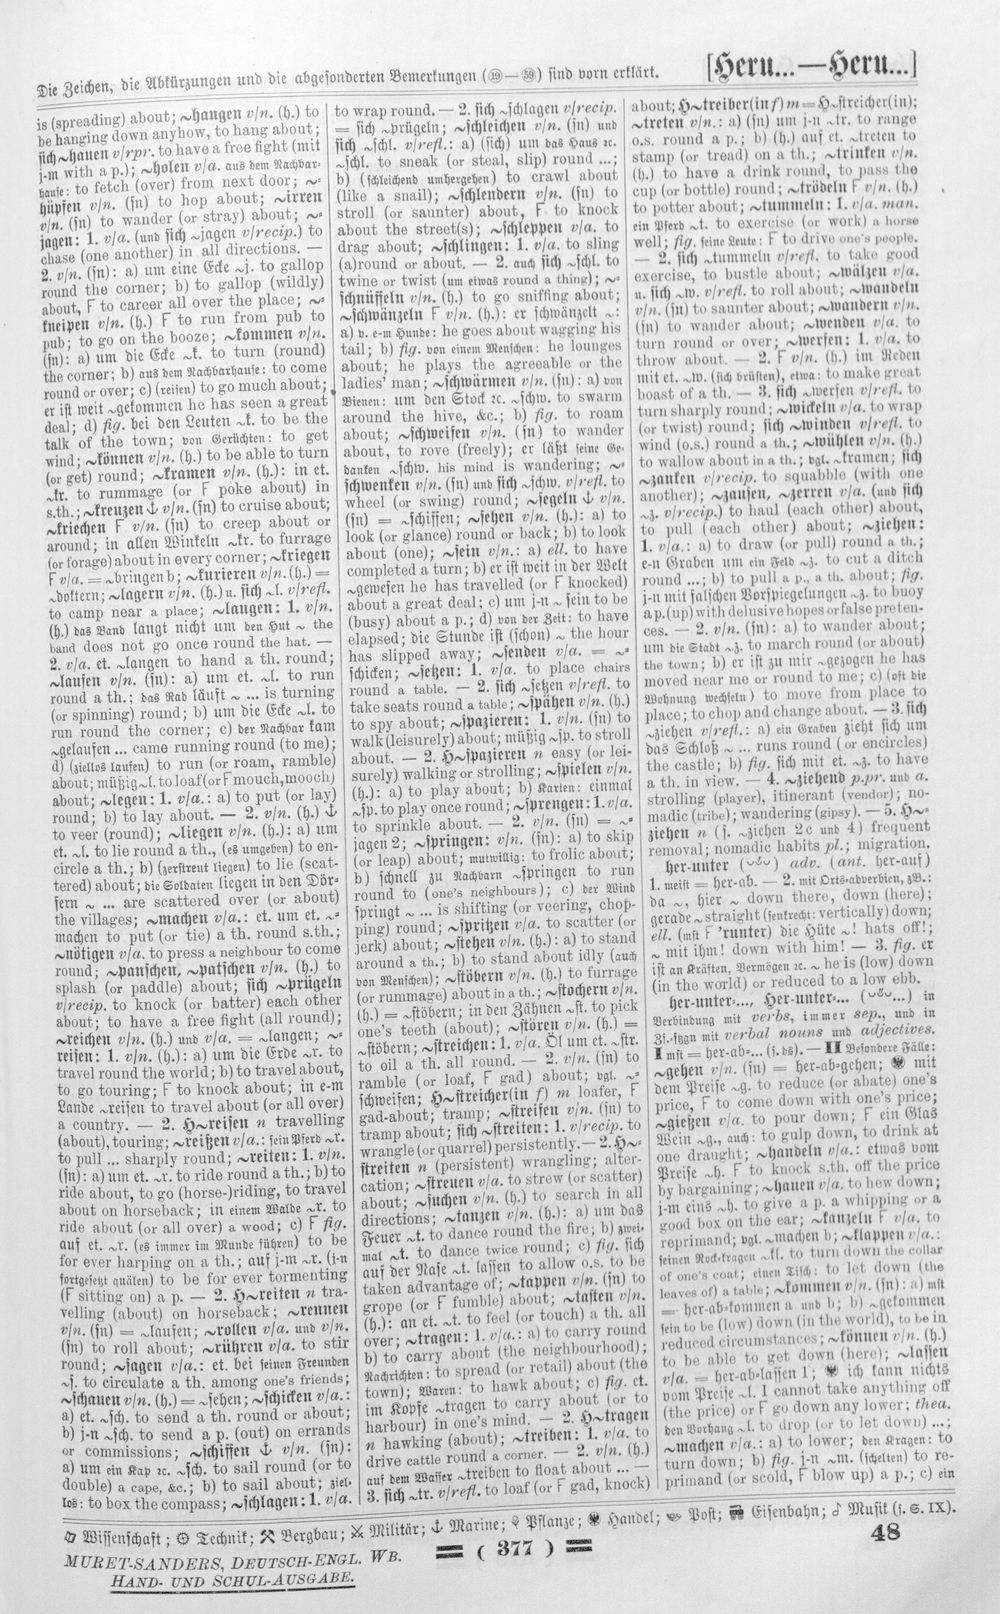 Die Zeichen, die Abkürzungen und die abgesonderten Bemerkungen (⑲—㊿) sind vorn erklärt.
[Heru...—Heru...]
is (spreading) about; ~hangen v/n. (h.) to
be hanging down anyhow, to hang about;
sich ~hauen v/rpr. to have a free fight (mit
j-m with a p.); ~holen v/a. aus dem Nachbar-
hause: to fetch (over) from next door; ~=
hüpfen v/n. (sn) to hop about; ~irren
v/n. (sn) to wander (or stray) about; ~=
jagen: 1. v/a. (und sich ~jagen v/recip.) to
chase (one another) in all directions. —
2. v/n. (sn): a) um eine Ecke ~j. to gallop
round the corner; b) to gallop (wildly)
about, F to career all over the place; ~=
kneipen v/n. (h.) F to run from pub to
pub; to go on the booze; ~kommen v/n.
(sn): a) um die Ecke ~k. to turn (round)
the corner; b) aus dem Nachbarhause: to come
round or over; c) (reisen) to go much about;
er ist weit ~gekommen he has seen a great
deal; d) fig. bei den Leuten ~k. to be the
talk of the town; von Gerüchten: to get
wind; ~können v/n. (h.) to be able to turn
(or get) round; ~kramen v/n. (h.): in et.
~kr. to rummage (or F poke about) in
s.th.; ~kreuzen ⚓ v/n. (sn) to cruise about;
~kriechen F v/n. (sn) to creep about or
around; in allen Winkeln ~kr. to furrage
(or forage) about in every corner; ~kriegen
F v/a. = ~bringen b; ~kurieren v/n. (h.) =
~doktern; ~lagern v/n. (h.) u. sich ~l. v/refl.
to camp near a place; ~langen: 1. v/n.
(h.) das Band langt nicht um den Hut ~ the
band does not go once round the hat. —
2. v/a. et. ~langen to hand a th. round;
~laufen v/n. (sn): a) um et. ~l. to run
round a th.; das Rad läuft ~ ... is turning
(or spinning) round; b) um die Ecke ~l. to
run round the corner; c) der Nachbar kam
~gelaufen ... came running round (to me);
d) (ziellos laufen) to run (or roam, ramble)
about; müßig ~l. to loaf (or F mouch, mooch)
about; ~legen: 1. v/a.: a) to put (or lay)
round; b) to lay about. — 2. v/n. (h.) ⚓
to veer (round); ~liegen v/n. (h.): a) um
et. ~l. to lie round a th., (es umgeben) to en-
circle a th.; b) (zerstreut liegen) to lie (scat-
tered) about; die Soldaten liegen in den Dör-
fern ~ ... are scattered over (or about)
the villages; ~machen v/a.: et. um et. ~=
machen to put (or tie) a th. round s.th.;
~nötigen v/a. to press a neighbour to come
round; ~panschen, ~patschen v/n. (h.) to
splash (or paddle) about; sich ~prügeln
v/recip. to knock (or batter) each other
about; to have a free fight (all round);
~reichen v/n. (h.) und v/a. = ~langen; ~=
reisen: 1. v/n. (h.): a) um die Erde ~r. to
travel round the world; b) to travel about,
to go touring; F to knock about; in e-m
Lande ~reisen to travel about (or all over)
a country. — 2. H~reisen n travelling
(about), touring; ~reißen v/a.: sein Pferd ~r.
to pull ... sharply round; ~reiten: 1. v/n.
(sn): a) um et. ~r. to ride round a th.; b) to
ride about, to go (horse-)riding, to travel
about on horseback; in einem Walde ~r. to
ride about (or all over) a wood; c) F fig.
auf et. ~r. (es immer im Munde führen) to be
for ever harping on a th.; auf j-m ~r. (j-n
fortgesetzt quälen) to be for ever tormenting
(F sitting on) a p. — 2. H~reiten n tra-
velling (about) on horseback; ~rennen
v/n. (sn) = ~laufen; ~rollen v/a. und v/n.
(sn) to roll about; ~rühren v/a. to stir
round; ~sagen v/a.: et. bei seinen Freunden
~s. to circulate a th. among one's friends;
~schauen v/n. (h.) = ~sehen; ~schicken v/a.:
a) et. ~sch. to send a th. round or about;
b) j-n ~sch. to send a p. (out) on errands
or commissions; ~schiffen ⚓ v/n. (sn):
a) um ein Kap ec. ~sch. to sail round (or to
double) a cape, &c.; b) to sail about; ziel-
los: to box the compass; ~schlagen: 1. v/a.
to wrap round. — 2. sich ~schlagen v/recip.
= sich ~prügeln; ~schleichen v/n. (sn) und
sich ~schl. v/refl.: a) (sich) um das Haus ec.
~schl. to sneak (or steal, slip) round ...;
b) (schleichend umhergehen) to crawl about
(like a snail); ~schlendern v/n. (sn) to
stroll (or saunter) about, F to knock
about the street(s); ~schleppen v/a. to
drag about; ~schlingen: 1. v/a. to sling
(a)round or about. — 2. auch sich ~schl. to
twine or twist (um etwas round a thing); ~=
schnüffeln v/n. (h.) to go sniffing about;
~schwänzeln F v/n. (h.): er schwänzelt ~:
a) v. e-m Hunde: he goes about wagging his
tail; b) fig. von einem Menschen: he lounges
about; he plays the agreeable or the
ladies' man; ~schwärmen v/n. (sn): a) von
Bienen: um den Stock ec. ~schw. to swarm
around the hive, &c.; b) fig. to roam
about; ~schweifen v/n. (sn) to wander
about, to rove (freely); er läßt seine Ge-
danken ~schw. his mind is wandering; ~=
schwenken v/n. (sn) und sich ~schw. v/refl. to
wheel (or swing) round; ~segeln ⚓ v/n.
(sn) = ~schiffen; ~sehen v/n. (h.): a) to
look (or glance) round or back; b) to look
about (one); ~sein v/n.: a) ell. to have
completed a turn; b) er ist weit in der Welt
~gewesen he has travelled (or F knocked)
about a great deal; c) um j-n ~ sein to be
(busy) about a p.; d) von der Zeit: to have
elapsed; die Stunde ist (schon) ~ the hour
has slipped away; ~senden v/a. = ~=
schicken; ~setzen: 1. v/a. to place chairs
round a table. — 2. sich ~setzen v/refl. to
take seats round a table; ~spähen v/n. (h.)
to spy about; ~spazieren: 1. v/n. (sn) to
walk (leisurely) about; müßig ~sp. to stroll
about. — 2. H~spazieren n easy (or lei-
surely) walking or strolling; ~spielen v/n.
(h.): a) to play about; b) Karten: einmal
~sp. to play once round; ~sprengen: 1. v/a.
to sprinkle about. — 2. v/n. (sn) = ~=
jagen 2; ~springen: v/n. (sn): a) to skip
(or leap) about; mutwillig: to frolic about;
b) schnell zu Nachbarn ~springen to run
round to (one's neighbours); c) der Wind
springt ~ ... is shifting (or veering, chop-
ping) round; ~spritzen v/a. to scatter (or
jerk) about; ~stehen v/n. (h.): a) to stand
around a th.; b) to stand about idly (auch
von Menschen); ~stöbern v/n. (h.) to furrage
(or rummage) about in a th.; ~stochern v/n.
(h.) = ~stöbern; in den Zähnen ~st. to pick
one's teeth (about); ~stören v/n. (h.) =
~stöbern; ~streichen: 1. v/a. Öl um et. ~str.
to oil a th. all round. — 2. v/n. (sn) to
ramble (or loaf, F gad) about; vgl. ~=
schweifen; H~streicher (in f) m loafer, F
gad-about; tramp; ~streifen v/n. (sn) to
tramp about; sich ~streiten: 1. v/recip. to
wrangle (or quarrel) persistently. — 2. H~=
streiten n (persistent) wrangling; alter-
cation; ~streuen v/a. to strew (or scatter)
about; ~suchen v/n. (h.) to search in all
directions; ~tanzen v/n. (h.): a) um das
Feuer ~t. to dance round the fire; b) zwei-
mal ~t. to dance twice round; c) fig. sich
auf der Nase ~t. lassen to allow o.s. to be
taken advantage of; ~tappen v/n. (sn) to
grope (or F fumble) about; ~tasten v/n.
(h.): an et. ~t. to feel (or touch) a th. all
over; ~tragen: 1. v/a.: a) to carry round
b) to carry about (the neighbourhood);
Nachrichten: to spread (or retail) about (the
town); Waren: to hawk about; c) fig. et.
im Kopfe ~tragen to carry about (or to
harbour) in one's mind. — 2. H~tragen
n hawking (about); ~treiben: 1. v/a. to
drive cattle round a corner. — 2. v/n. (h.)
auf dem Wasser ~treiben to float about ... —
3. sich ~tr. v/refl. to loaf (or F gad, knock)
about; H~treiber (in f) m = H~streicher(in);
~treten v/n.: a) (sn) um j-n ~tr. to range
o.s. round a p.; b) (h.) auf et. ~treten to
stamp (or tread) on a th.; ~trinken v/n.
(h.) to have a drink round, to pass the
cup (or bottle) round; ~trödeln F v/n. (h.)
to potter about; ~tummeln: 1. v/a. man.
ein Pferd ~t. to exercise (or work) a horse
well; fig. seine Leute: F to drive one's people.
— 2. sich ~tummeln v/refl. to take good
exercise, to bustle about; ~wälzen v/a.
u. sich ~w. v/refl. to roll about; ~wandeln
v/n. (sn) to saunter about; ~wandern v/n.
(sn) to wander about; ~wenden v/a. to
turn round or over; ~werfen: 1. v/a. to
throw about. — 2. F v/n. (h.) im Reden
mit et. ~w. (sich brüsten), etwa: to make great
boast of a th. — 3. sich ~werfen v/refl. to
turn sharply round; ~wickeln v/a. to wrap
(or twist) round; sich ~winden v/refl. to
wind (o.s.) round a th.; ~wühlen v/n. (h.)
to wallow about in a th.; vgl. ~kramen; sich
~zanken v/recip. to squabble (with one
another); ~zausen, ~zerren v/a. (und sich
~z. v/recip.) to haul (each other) about,
to pull (each other) about; ~ziehen:
1. v/a.: a) to draw (or pull) round a th.;
e-n Graben um ein Feld ~z. to cut a ditch
round ...; b) to pull a p., a th. about; fig.
j-n mit falschen Vorspiegelungen ~z. to buoy
a p. (up) with delusive hopes or false preten-
ces. — 2. v/n. (sn): a) to wander about;
um die Stadt ~z. to march round (or about)
the town; b) er ist zu mir ~gezogen he has
moved near me or round to me; c) (oft die
Wohnung wechseln) to move from place to
place; to chop and change about. — 3. sich
~ziehen v/refl.: a) ein Graben zieht sich um
das Schloß ~ ... runs round (or encircles)
the castle; b) fig. sich mit et. ~z. to have
a th. in view. — 4. ~ziehend p.pr. und a.
strolling (player), itinerant (vendor); no-
madic (tribe); wandering (gipsy). — 5. H~=
ziehen n (s. ~ziehen 2c und 4) frequent
removal; nomadic habits pl.; migration.
her-unter (˘ˊ˘) adv. (ant. her-auf)
1. meist = her-ab. — 2. mit Orts-adverbien, zB.:
da ~, hier ~ down there, down (here);
gerade ~ straight (senkrecht: vertically) down;
ell. (mst F 'runter) die Hüte ~! hats off!;
~ mit ihm! down with him! — 3. fig. er
ist an Kräften, Vermögen ec. ~ he is (low) down
(in the world) or reduced to a low ebb.
her-unter-..., Her-unter-... (˘ˊ˘...) in
Verbindung mit verbs, immer sep., und in
Zs.-ftgn mit verbal nouns und adjectives.
I mst = her-ab-... (s. ds). — II Besondere Fälle:
~gehen v/n. (sn) = her-ab-gehen; mit
dem Preise ~g. to reduce (or abate) one's
price, F to come down with one's price;
~gießen v/a. to pour down; F ein Glas
Wein ~g., auch: to gulp down, to drink at
one draught; ~handeln v/a.: etwas vom
Preise ~h. F to knock s.th. off the price
by bargaining; ~hauen v/a. to hew down;
j-m eins ~h. to give a p. a whipping or a
good box on the ear; ~kanzeln F v/a. to
reprimand; vgl. ~machen b; ~klappen v/a.:
seinen Rockkragen ~kl. to turn down the collar
of one's coat; einen Tisch: to let down (the
leaves of) a table; ~kommen v/n. (sn): a) mst
= her-ab-kommen a und b; b) ~gekommen
sein to be (low) down (in the world), to be in
reduced circumstances; ~können v/n. (h.)
to be able to get down (here); ~lassen
v/a. = her-ab-lassen 1; ich kann nichts
vom Preise ~l. I cannot take anything off
(the price) or F go down any lower; thea.
den Vorhang ~l. to drop (or to let down) ...;
~machen v/a.: a) to lower; den Kragen: to
turn down; b) fig. j-n ~m. (schelten) to re-
primand (or scold, F blow up) a p.; c) ein
Wissenschaft; ⚙ Technik; ⚒ Bergbau; ⚔ Militär; ⚓ Marine; Pflanze; Handel; Post; Eisenbahn; ♪ Musik (s. S. IX).
MURET-SANDERS, DEUTSCH-ENGL. WB.
HAND- UND SCHUL-AUSGABE.
( 377 )
48